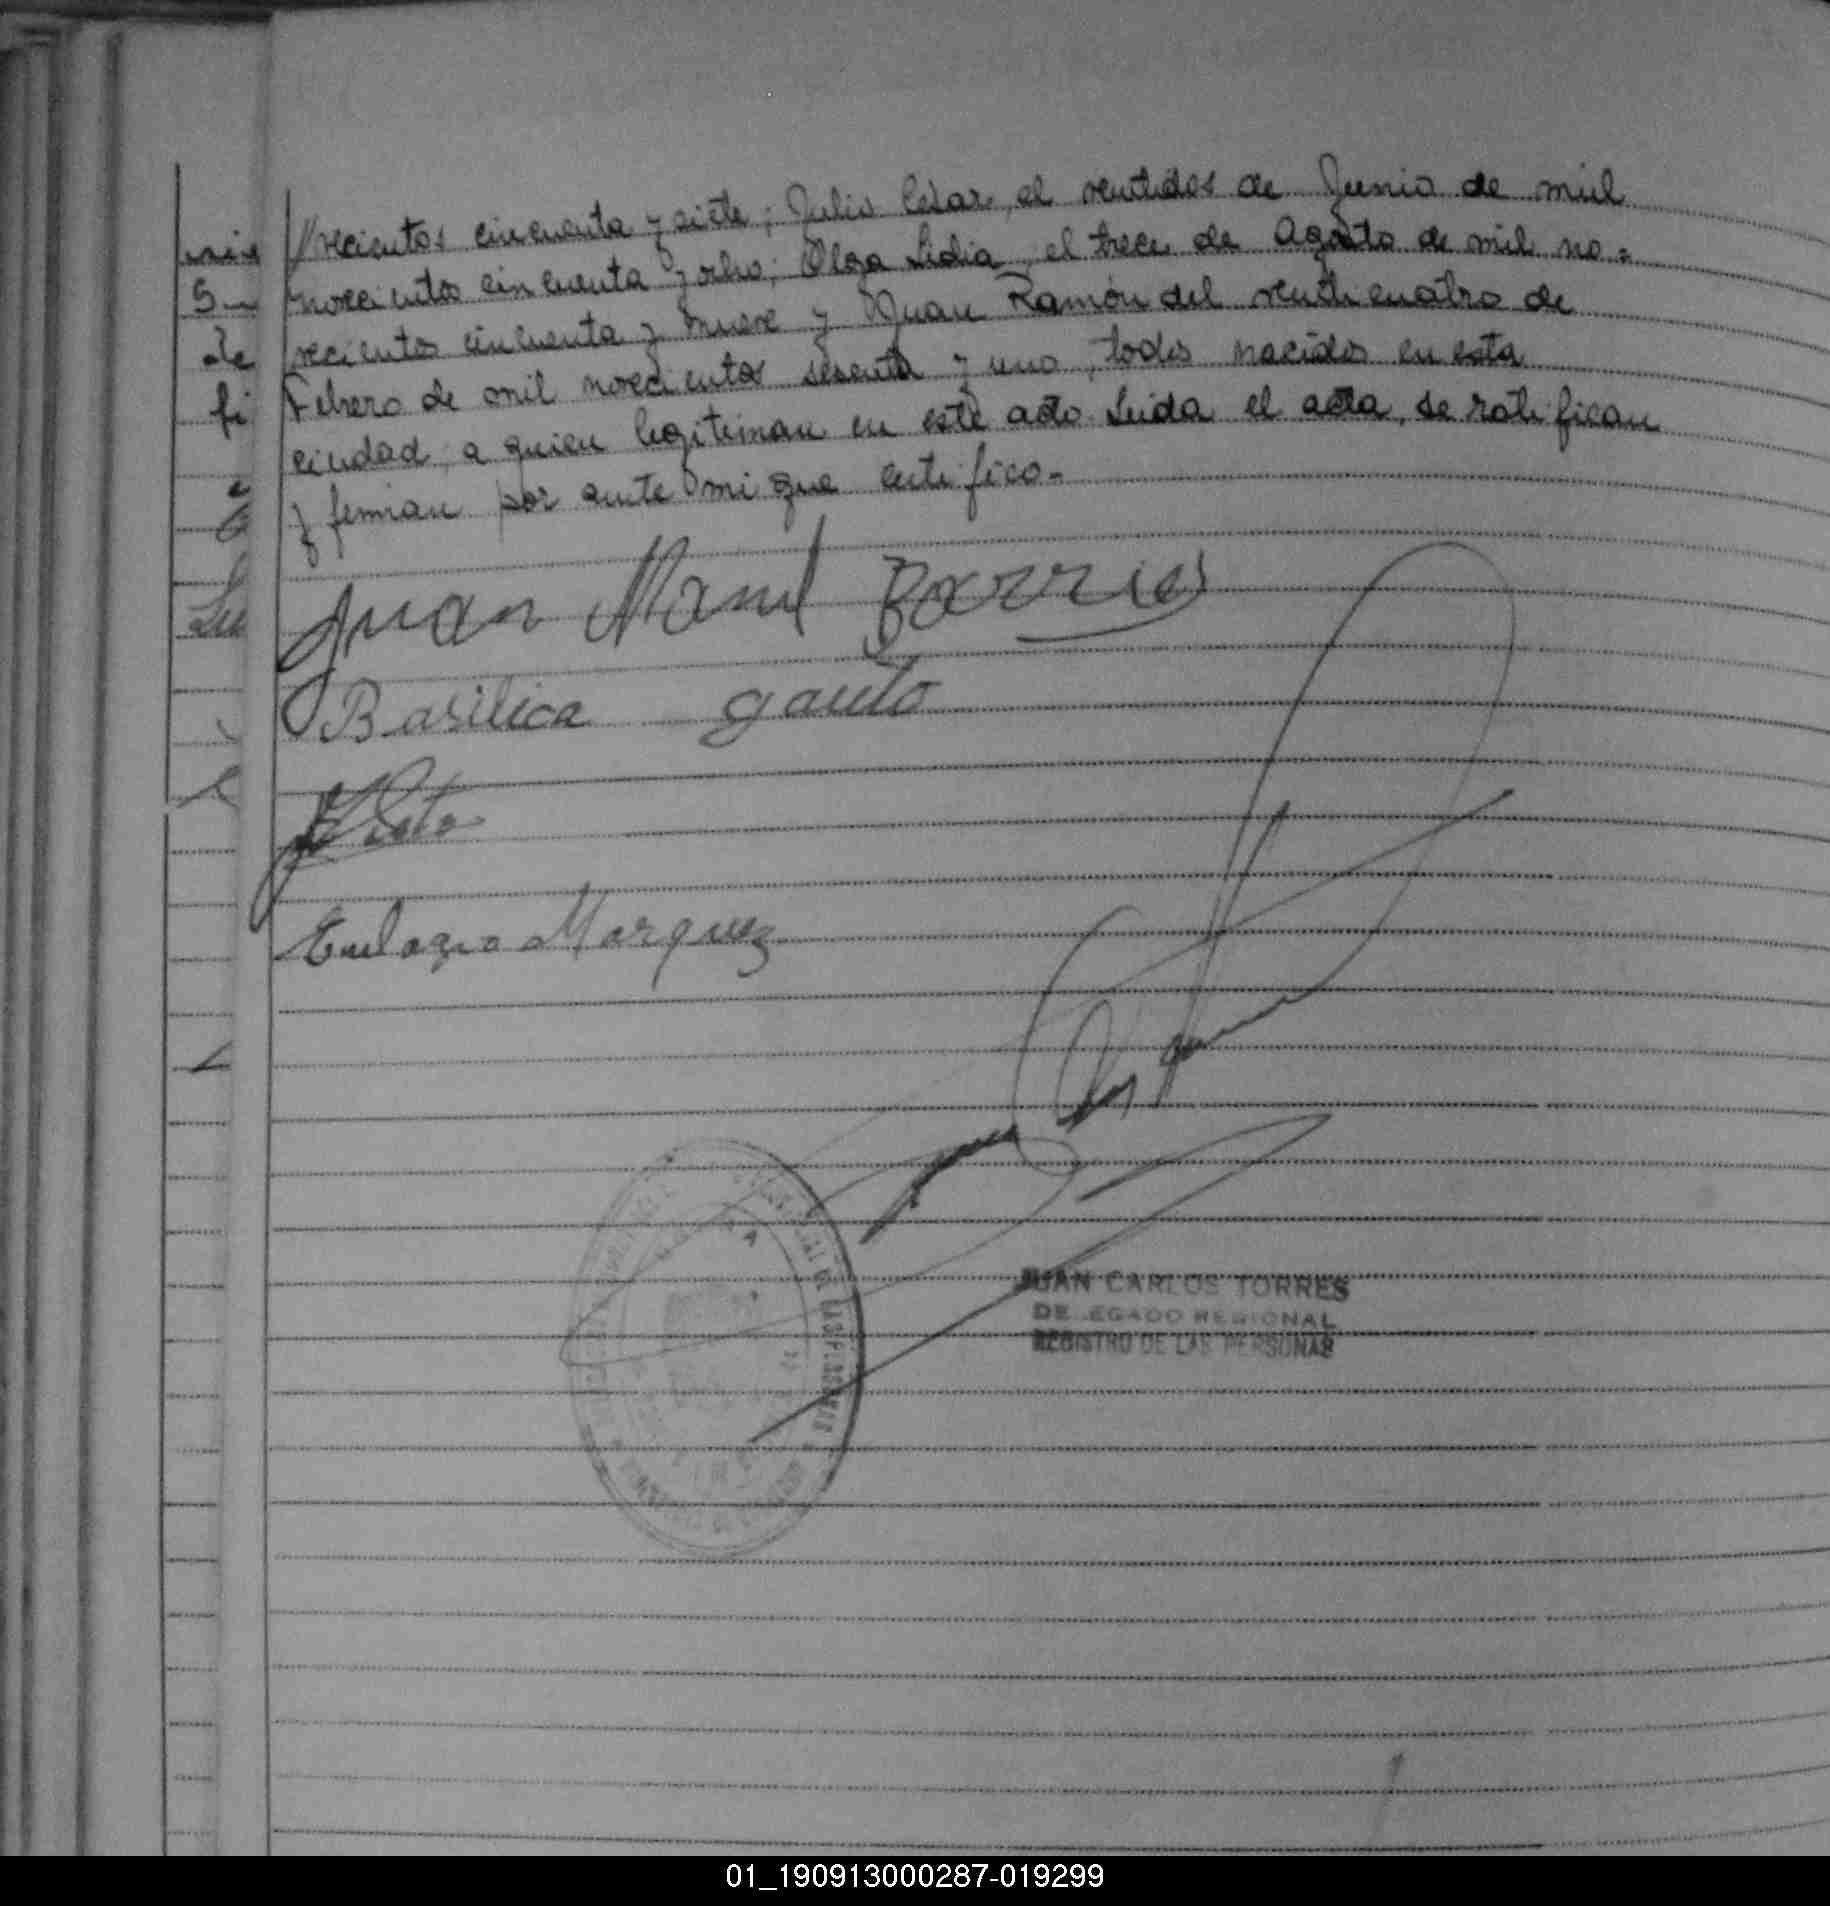 vecientos cincuenta y siete; Julio Cesar, el ventidos de Junio de mil
novecientos cincuenta y ocho; Olga Lidia, el trece de Agosto de mil no=
vecientos cincuenta y nueve y Juan Ramón del venticuatro de
Febrero de mil novecientos sesenta y uno, todos nacidos en esta
ciudad, a quien legitiman en este acto. Leida el acta, se ratifican
y firman por ante mi que certifico.-
Juan Manul Barrios
Basilica gauto
Eulogio Marquez
JUAN CARLOS TORRES
DELEGADO REGIONAL
REGISTRO DE LAS PERSONAS
01_190913000287-019299